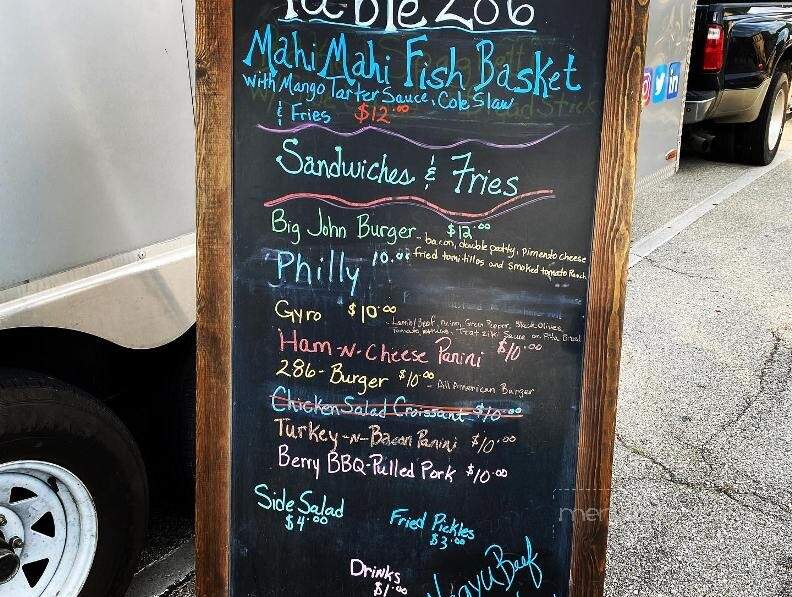 Table 286
Mahi Mahi Fish Basket
with Mango Tarter Sauce, Cole Slaw
& Fries $12.00
Sandwiches & Fries
Big John Burger $12.00
- bacon, double patty, pimento cheese
fried tomitillos and smoked tomato Ranch
Philly 10.00
Gyro $10.00
- Lamb/Beef, Onion, Green Pepper, Black Olives,
Sauce on Pita Bread
Ham-N-Cheese Panini $10.00
286-Burger $10.00 - All American Burger
Chicken Salad Croissant $10.00
Turkey-N-Bacon Panini $10.00
Berry BBQ-Pulled Pork $10.00
Side Salad
$4.00
Fried Pickles
$3.00
Drinks
$1.00
Beef